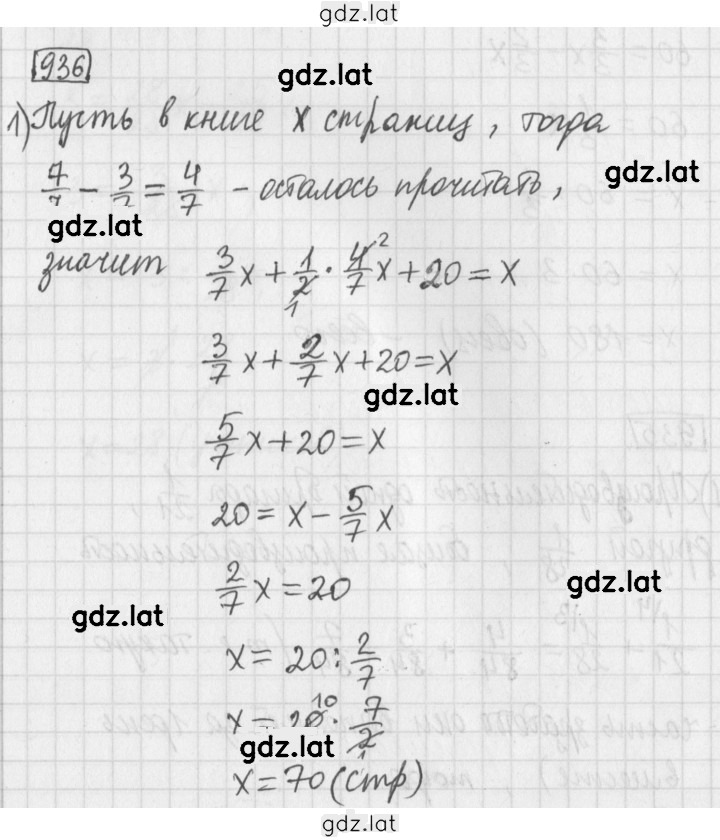 gdz.lat
936
gdz.lat
1) Пусть в книге x страниц, тогда
gdz.lat
7/7 - 3/7 = 4/7 - осталось прочитать,
gdz.lat
значит 3/7 x + 1/2 · 4/7 x + 20 = x
1 2
3/7 x + 2/7 x + 20 = x
gdz.lat
5/7 x + 20 = x
20 = x - 5/7 x
gdz.lat
2/7 x = 20
gdz.lat
x = 20 : 2/7
x = 20 · 7/2
10 1
gdz.lat
x = 70 (стр)
gdz.lat